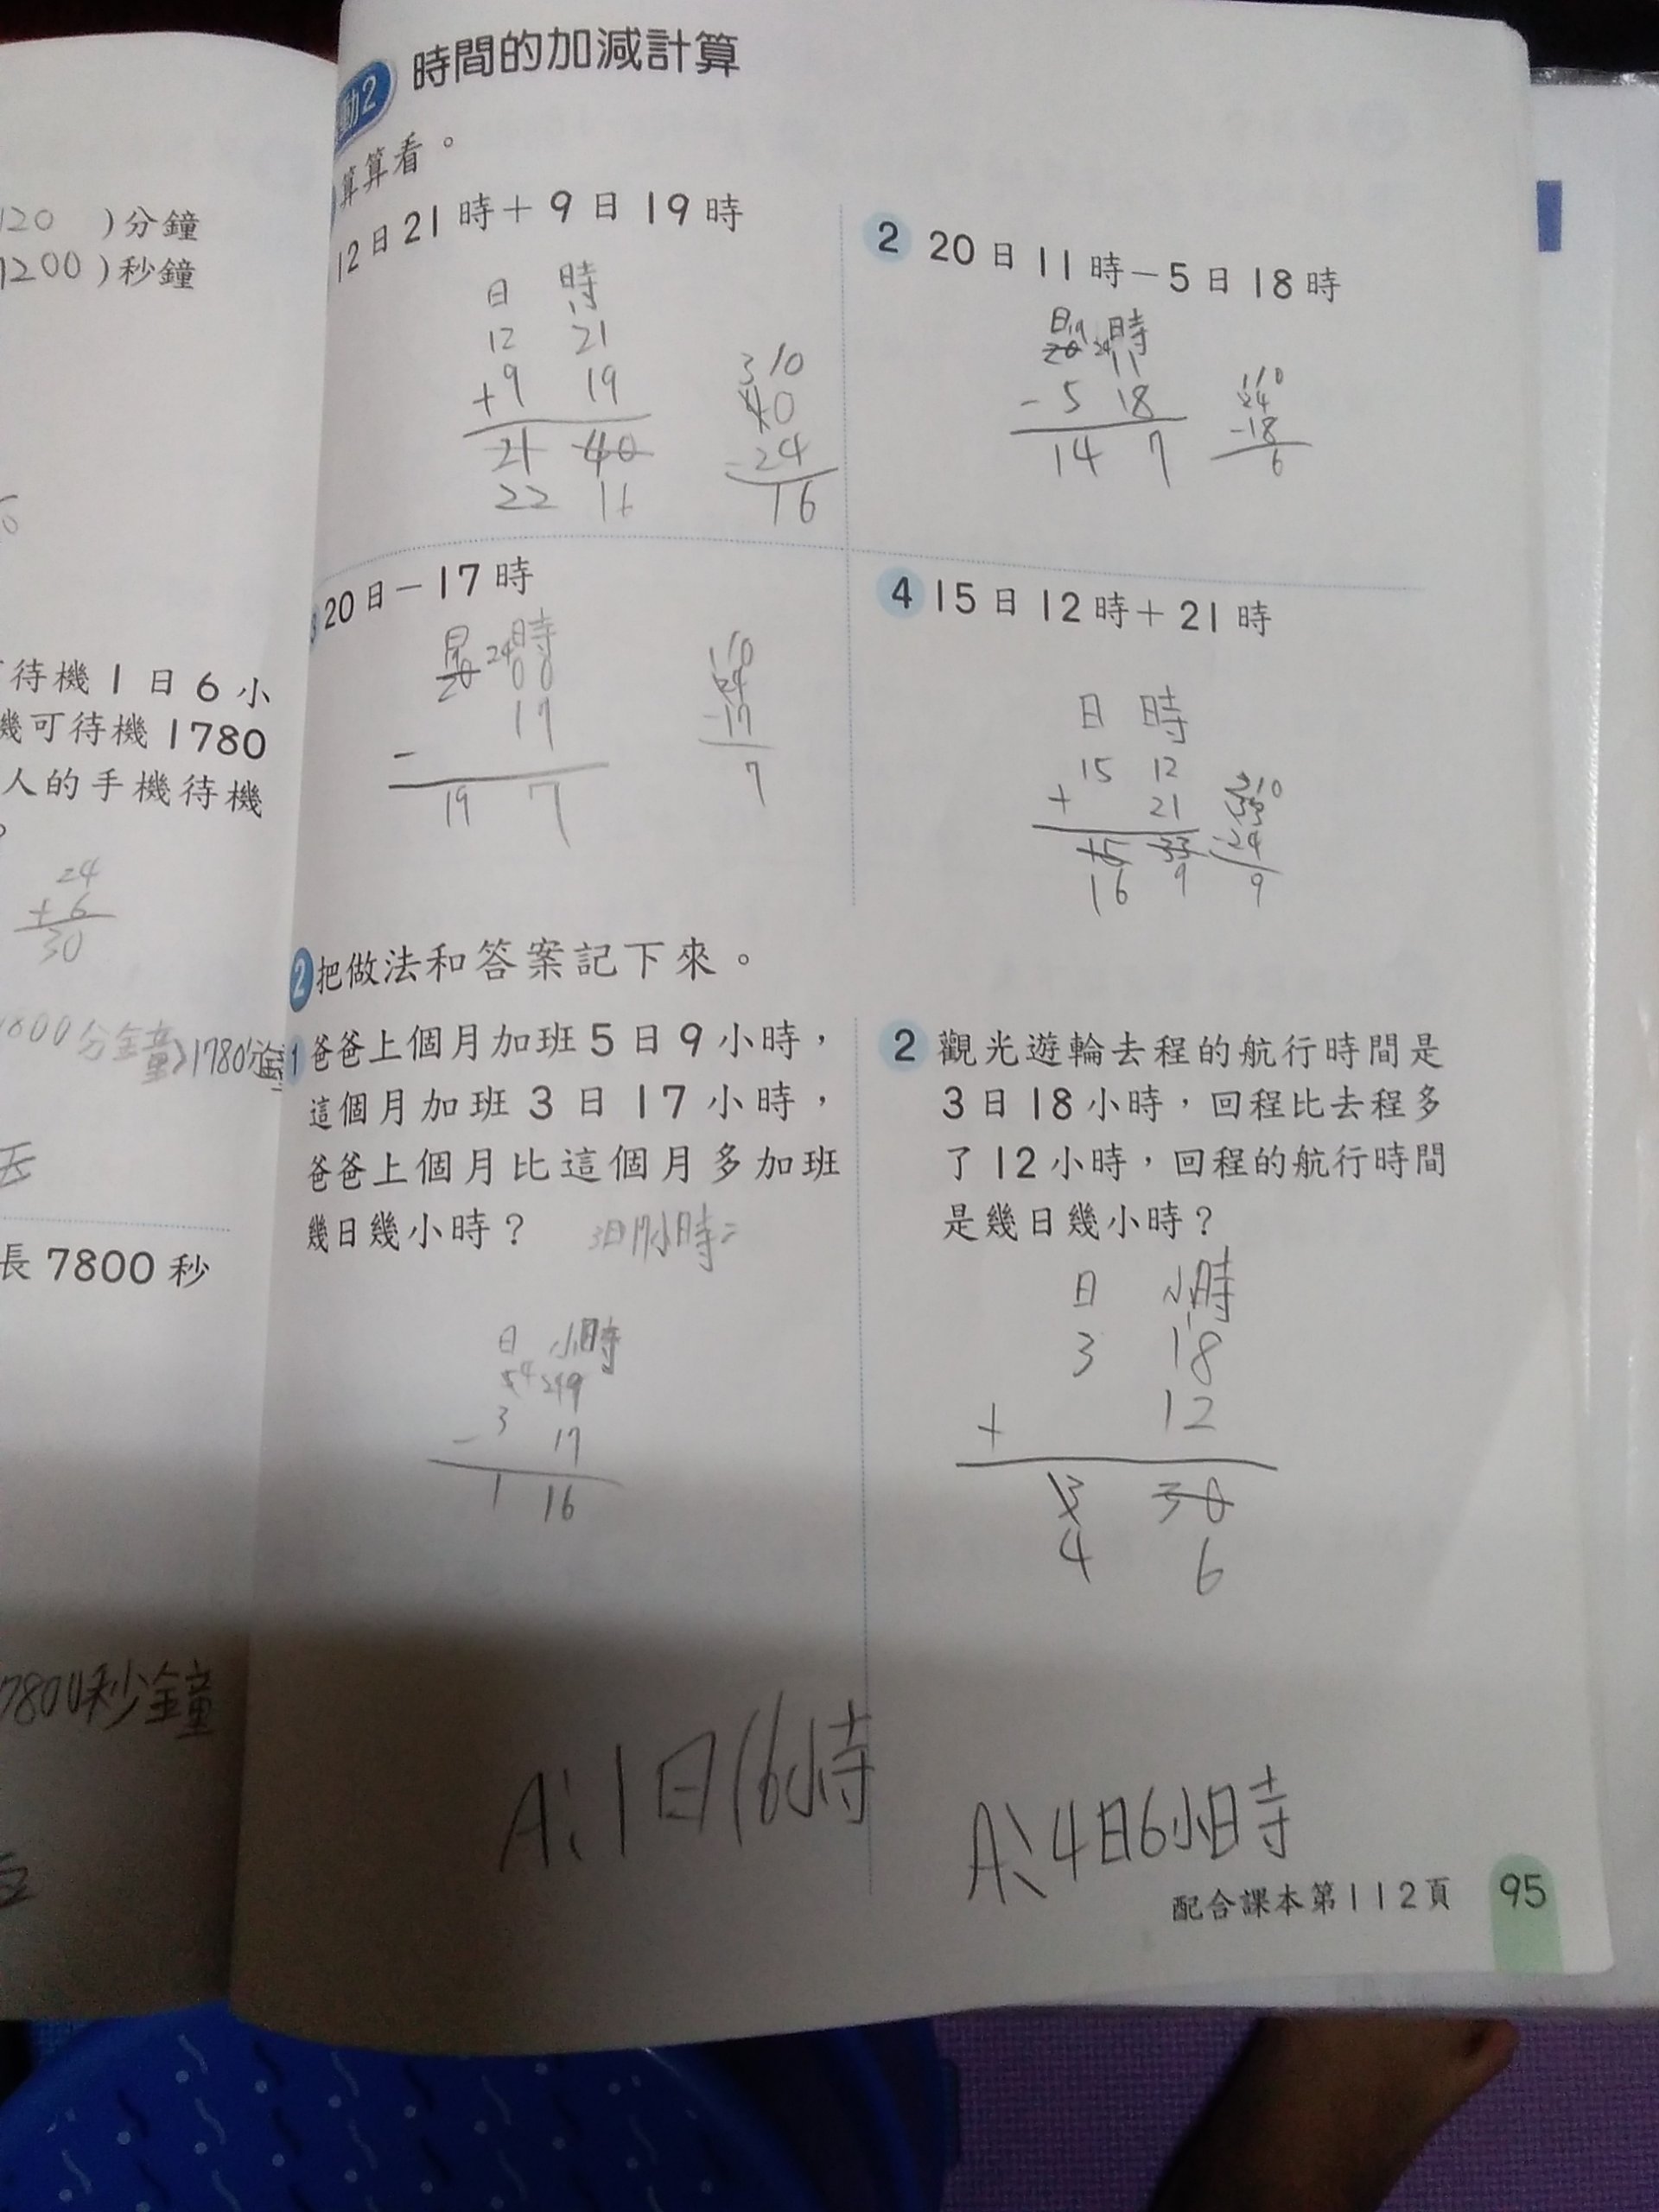 120 )分鐘
1200)秒鐘
待機1日6小
機可待機1780
人的手機待機
24
+6
30
1800分鐘>1780分鐘
長7800秒
7800秒鐘
動2 時間的加減計算
算算看。
12日21時+9日19時
日 時
12 21
+9 19
21 40
22 16
3 10
40
-24
16
2 20日11時-5日18時
日19 時
20 24 11
-5 18
14 7
1 10
24
-18
6
20日-17時
時
20 24 00
17
-
19 7
1 10
24
-17
7
4 15日12時+21時
日 時
15 12
+ 21
15 33
16 9
2 10
33
-24
9
2 把做法和答案記下來。
1 爸爸上個月加班5日9小時,
這個月加班3日17小時,
爸爸上個月比這個月多加班
幾日幾小時?
3日17小時=
日 小時
5 4 24 9
-3 17
1 16
A:1日16小時
2 觀光遊輪去程的航行時間是
3日18小時,回程比去程多
了12小時,回程的航行時間
是幾日幾小時?
日 小時
3 18
+ 12
3 30
4 6
A:4日6小時
配合課本第112頁 95